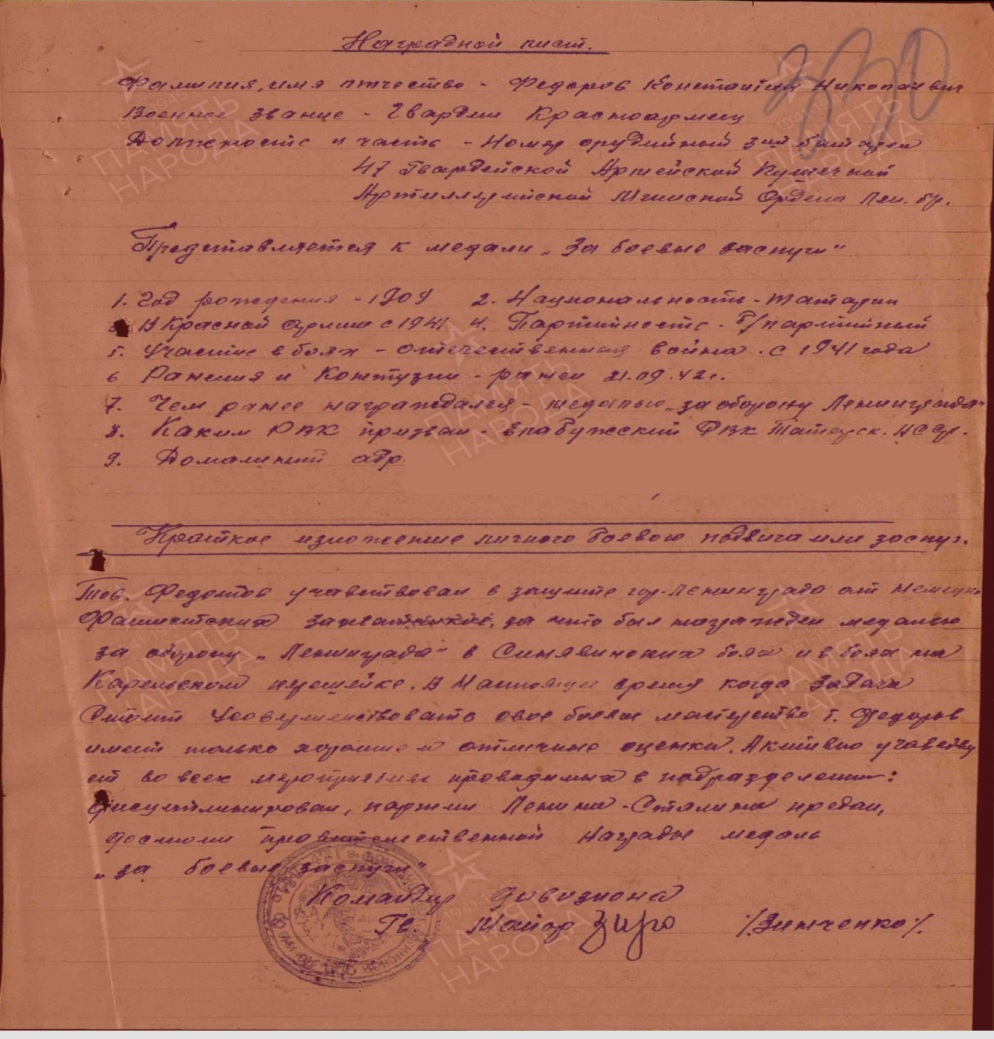 Наградной лист.
Фамилия, имя отчество - Федоров Константин Николаевич
Военное звание - Гвардии Красноармеец
Должность и часть - Номер орудийный 3ей батареи
47 Гвардейской Армейской Пушечной
Артиллерийской Мгинской Ордена Лен. бр.
Представляется к медали „За боевые заслуги"
1. Год рождения - 1909 2. Национальность - татарин
3. В Красной армии с 1941 4. Партийность - б/партийный
5. Участие в боях - отечественная война. с 1941 года
6 Ранения и Контузии - ранен 21.09.42г.
7. Чем ранее награждался - медалью „за оборону Ленинграда"
8. Каким РВК призван - Елабужский РВК Татарск. АССР.
9. Домашний адр
Краткое изложение личного боевого подвига или заслуг.
Тов. Федотов учавствовал в защите гор. Ленинграда от немецко
Фашистских захватчиков, за что был награжден медалью
за оборону „Ленинграда" в Синявинских боях и в боях на
Карельском перешейке. В Настоящее время когда Задача
Стоит Усовершенствовать свое боевое мастерство т. Федоров
имеет только хорошие и отличные оценки. Активно учавству
ет во всех мероприятиях проводимых в подразделении:
дисциплинирован, партии Ленина - Сталина предан,
достоин правительственной Награды медаль
„за боевые заслуги"
Командир дивизиона
Гв. Майор /Зинченко/.
ПАМЯТЬ
НАРОДА
ПАМЯТЬ
НАРОДА
ПАМЯТЬ
НАРОДА
ПАМЯТЬ
НАРОДА
ПАМЯТЬ
НАРОДА
ПАМЯТЬ
НАРОДА
ПАМЯТЬ
НАРОДА